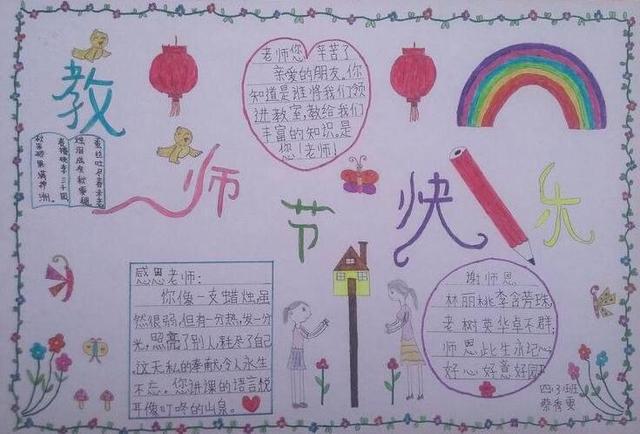 教师节快乐
老师您辛苦了
亲爱的朋友,你
知道是谁将我们领
进教室,教给我们
丰富的知识,是
您!老师!
感恩老师:
你像一支蜡烛虽
然很弱,但有一分热,发一分
光,照亮了别人,耗尽了自己
这无私的奉献,令人永生
不忘。您讲课的语言悦
耳像叮咚的山泉。
谢师恩
林丽桃李含芳珠,
老树英华卓不群,
师恩此生永记心
好心好意好
四(3)班
蔡秀雯